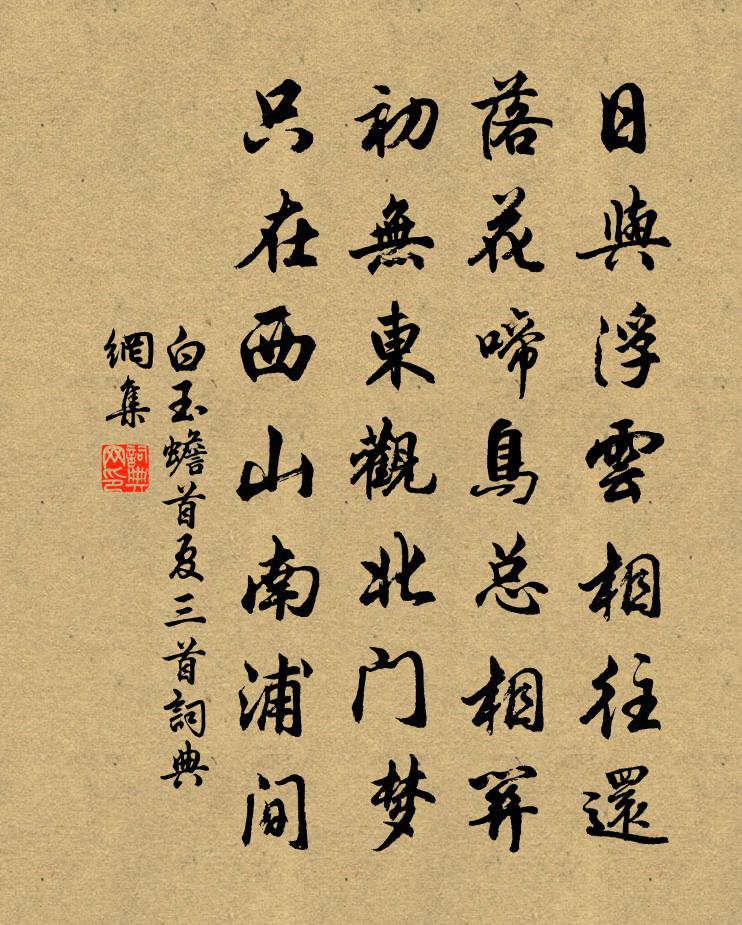 日與浮雲相往還
落花啼鳥总相關
初無東觀北门梦
只在西山南浦间
白玉蟾首夏三首詞典
網集
詞典网印